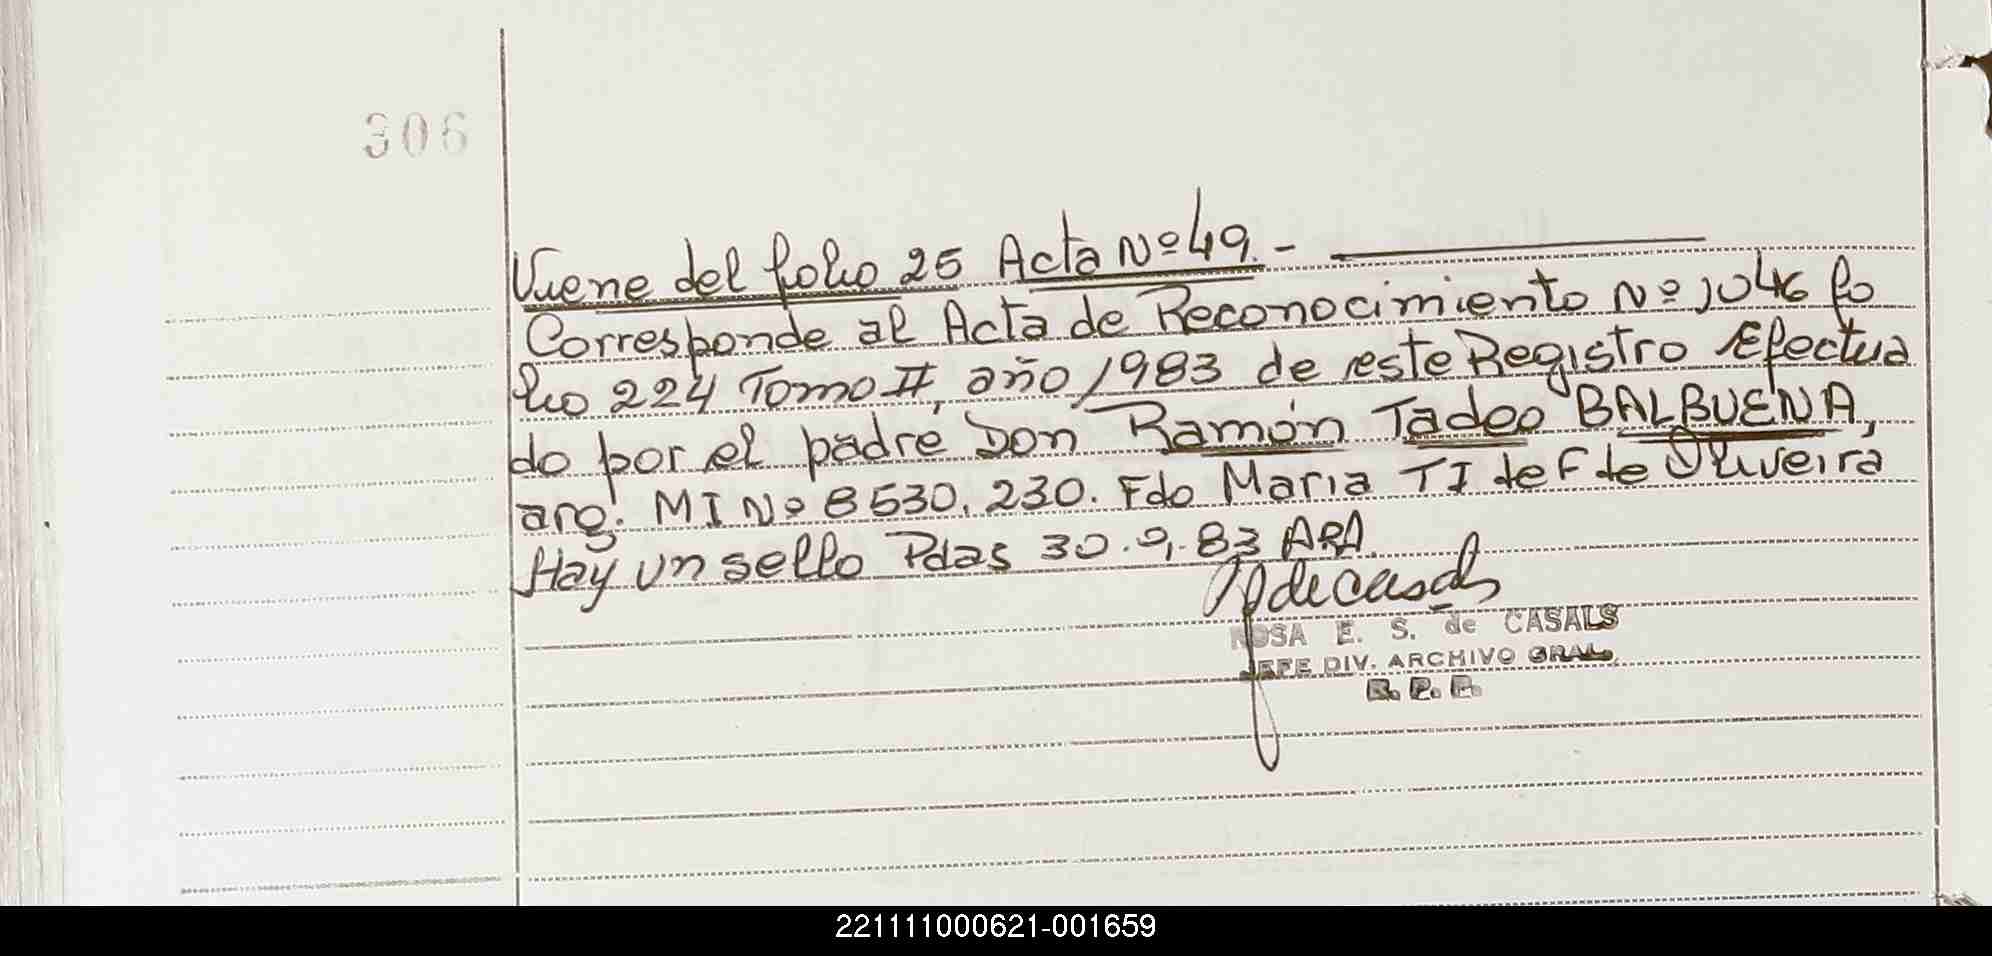 306
Viene del folio 25 Acta Nº 49.-
Corresponde al Acta de Reconocimiento Nº 1046 fo
lio 224 Tomo II, año 1983 de este Registro Efectua
do por el padre Don Ramón Tadeo BALBUENA,
arg. MI Nº 8530.230. Fdo Maria TI de F de Oliveira
Hay un sello Pdas 30.9.83 ARA.
de Casals
ROSA E. S. de CASALS
JEFE DIV. ARCHIVO GRAL.
R. P. P.
221111000621-001659